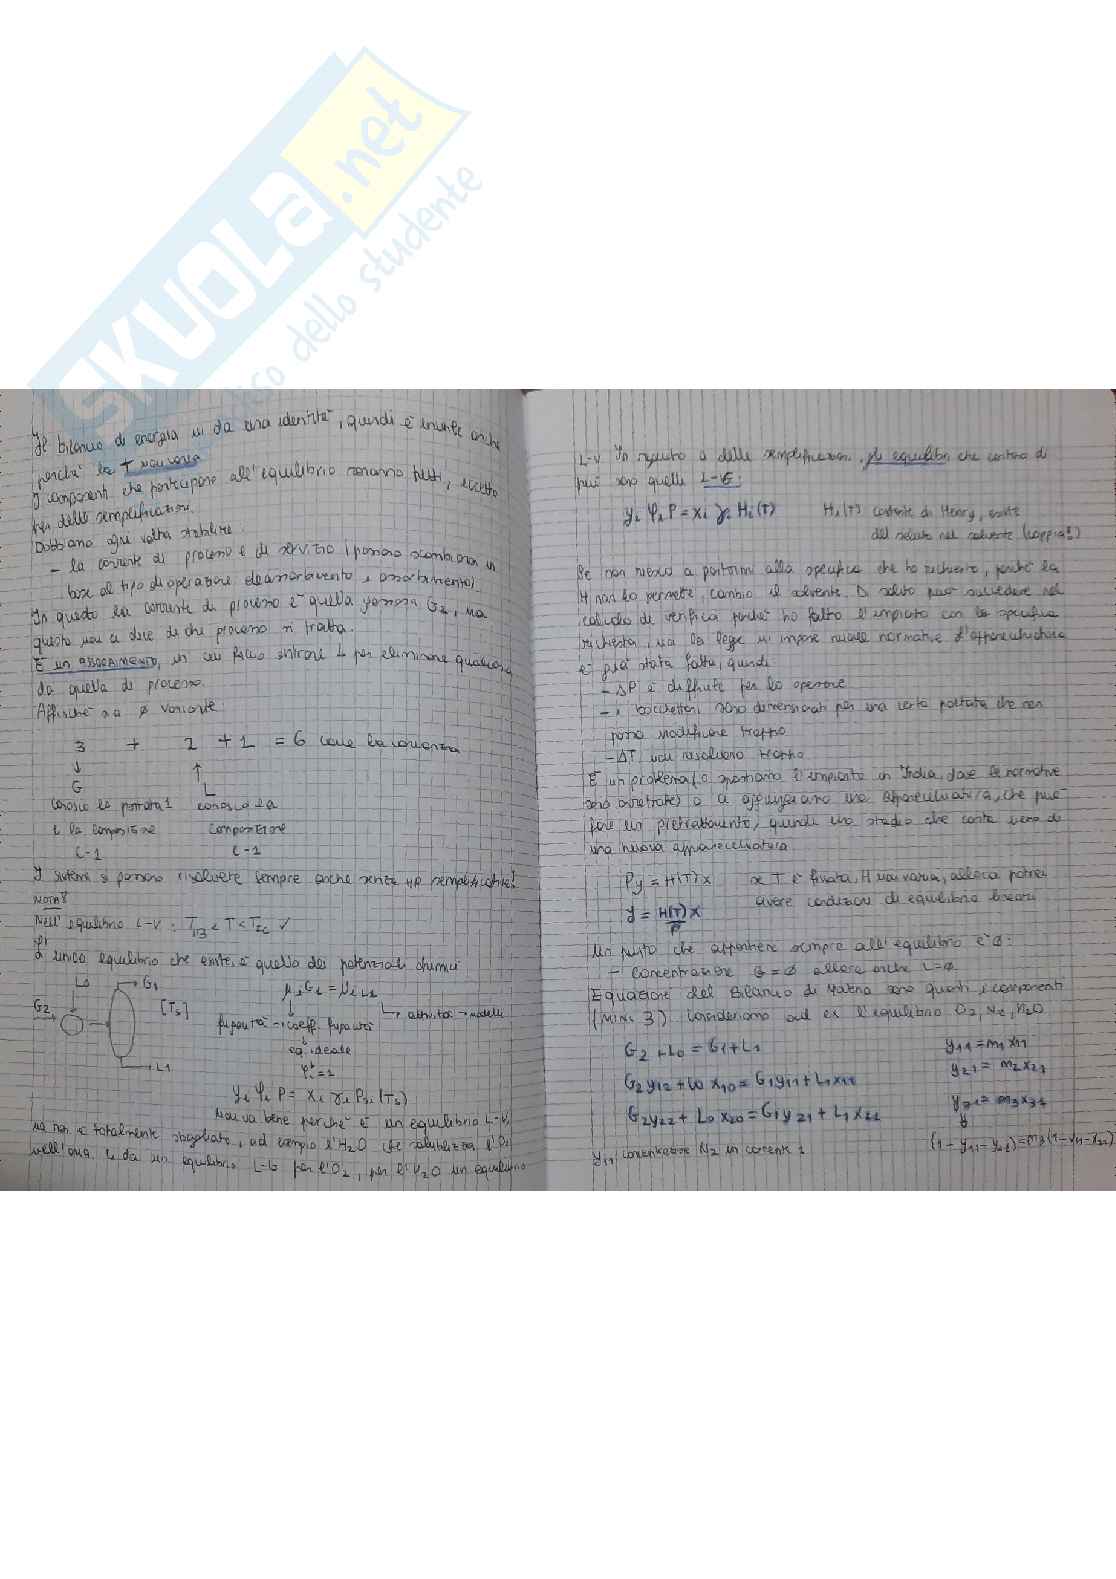 SKUOLA.net
dello studente
Il bilancio di energia mi dà una identità, quindi è inutile anche
perché la T non varia
I componenti che partecipano all'equilibrio saranno tutti, eccetto
per delle semplificazioni.
Dobbiamo ogni volta stabilire:
- la corrente di processo e di servizio (possono scambiarsi in
base al tipo di operazione, deassorbimento e assorbimento)
In questo la corrente di processo è quella gassosa G2, ma
questo non ci dice di che processo si tratta.
È un ASSORBIMENTO, in cui faccio entrare L per eliminare qualcosa
da quella di processo.
Affinché sia ø variante:
3 + 2 + 1 = 6 come la varianza
↓ ↑
G L
conosco la portata 1 conosco la
e la composizione composizione
C-1 C-1
I sistemi si possono risolvere sempre anche senza HP semplificative!
NOTA
Nell'equilibrio L-V: < T < ✓
L'unico equilibrio che esiste, è quello dei potenziali chimici
L0 G1
G2 [Ts]
L1
fugacità → coeff. fugacità → attività → modelli
eq. ideale
= 1
yi φi P = xi γi (Ts)
Non va bene perché è un equilibrio L-V,
ma non è totalmente sbagliato, ad esempio l'H2O che solubilizza l'O2
nell'aria mi dà un equilibrio L-G per l'O2, per l'H2O un equilibrio
L-V. In seguito a delle semplificazioni, gli equilibri che contano di
più sono quelli L-G:
yi φi P = xi γi Hi(T) Hi(T) costante di Henry, esiste
del soluto nel solvente (coppia!)
Se non riesco a portarmi alla specifica che ho richiesto, perché la
H non lo permette, cambio il solvente. Di solito può succedere nel
calcolo di verifica perché ho fatto l'impianto con la specifica
richiesta, ma la legge mi impone nuove normative e l'apparecchiatura
è già stata fatta, quindi:
- ΔP è difficile per lo operare
- i bocchettoni sono dimensionati per una certa portata che non
posso modificare troppo
- ΔT non risolvono troppo
È un problema, o spostiamo l'impianto in India, dove le normative
sono arretrate, o ci aggiungiamo una apparecchiatura, che può
fare un pretrattamento, quindi uno studio che conta meno di
una nuova apparecchiatura
Py = H(T)x se T è fissata, H non varia, allora potrei
avere condizioni di equilibrio lineari
y = H(T)x
P
Un punto che appartiene sempre all'equilibrio è ø:
- Concentrazione G = ø allora anche L = ø
Equazione del Bilancio di Materia sono quanti i componenti
(min. 3). Consideriamo ad es l'equilibrio O2, N2, H2O
G2 + L0 = G1 + L1
y11 = m1 x11
G2y12 + L0 x10 = G1y11 + L1x11
y21 = m2x21
G2y22 + L0 x20 = G1y21 + L1 x21
y31 = m3x31
y
y11: concentrazione N2 in corrente 1
(1 - y11 - y21) = m3(1 - x11 - x21)